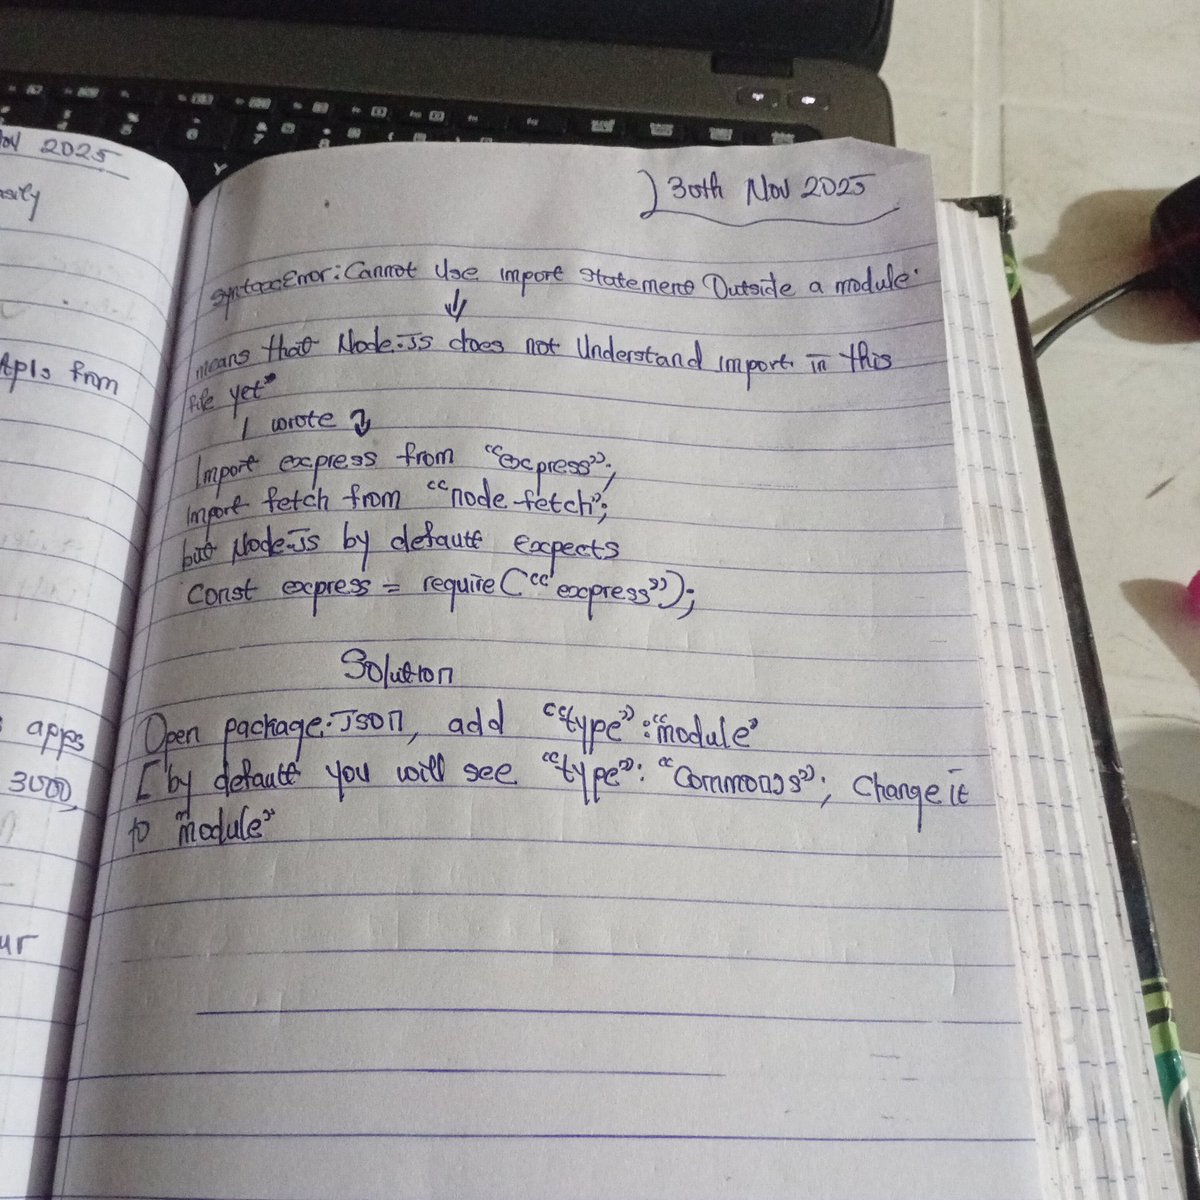 Nov 2025
APIs from
apps
3000,
ur
30th Nov 2025
SyntaxError: Cannot Use import statement Outside a module.
means that Node.JS does not Understand import in this
file yet"
I wrote
Import express from "express";
import fetch from "node-fetch";
but Node.Js by default expects
Const express = require("express");
Solution
Open package.JSON, add "type":"module"
[by default you will see "type": "CommonJs"; Change it
to "module"